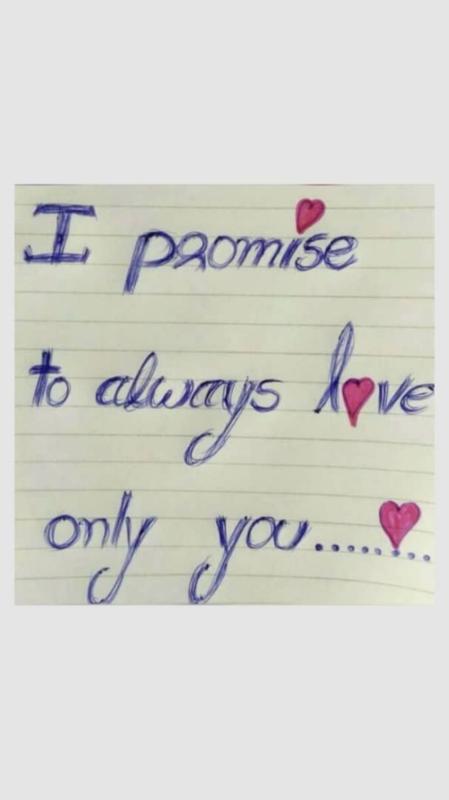 I promise
to always love
only you.........